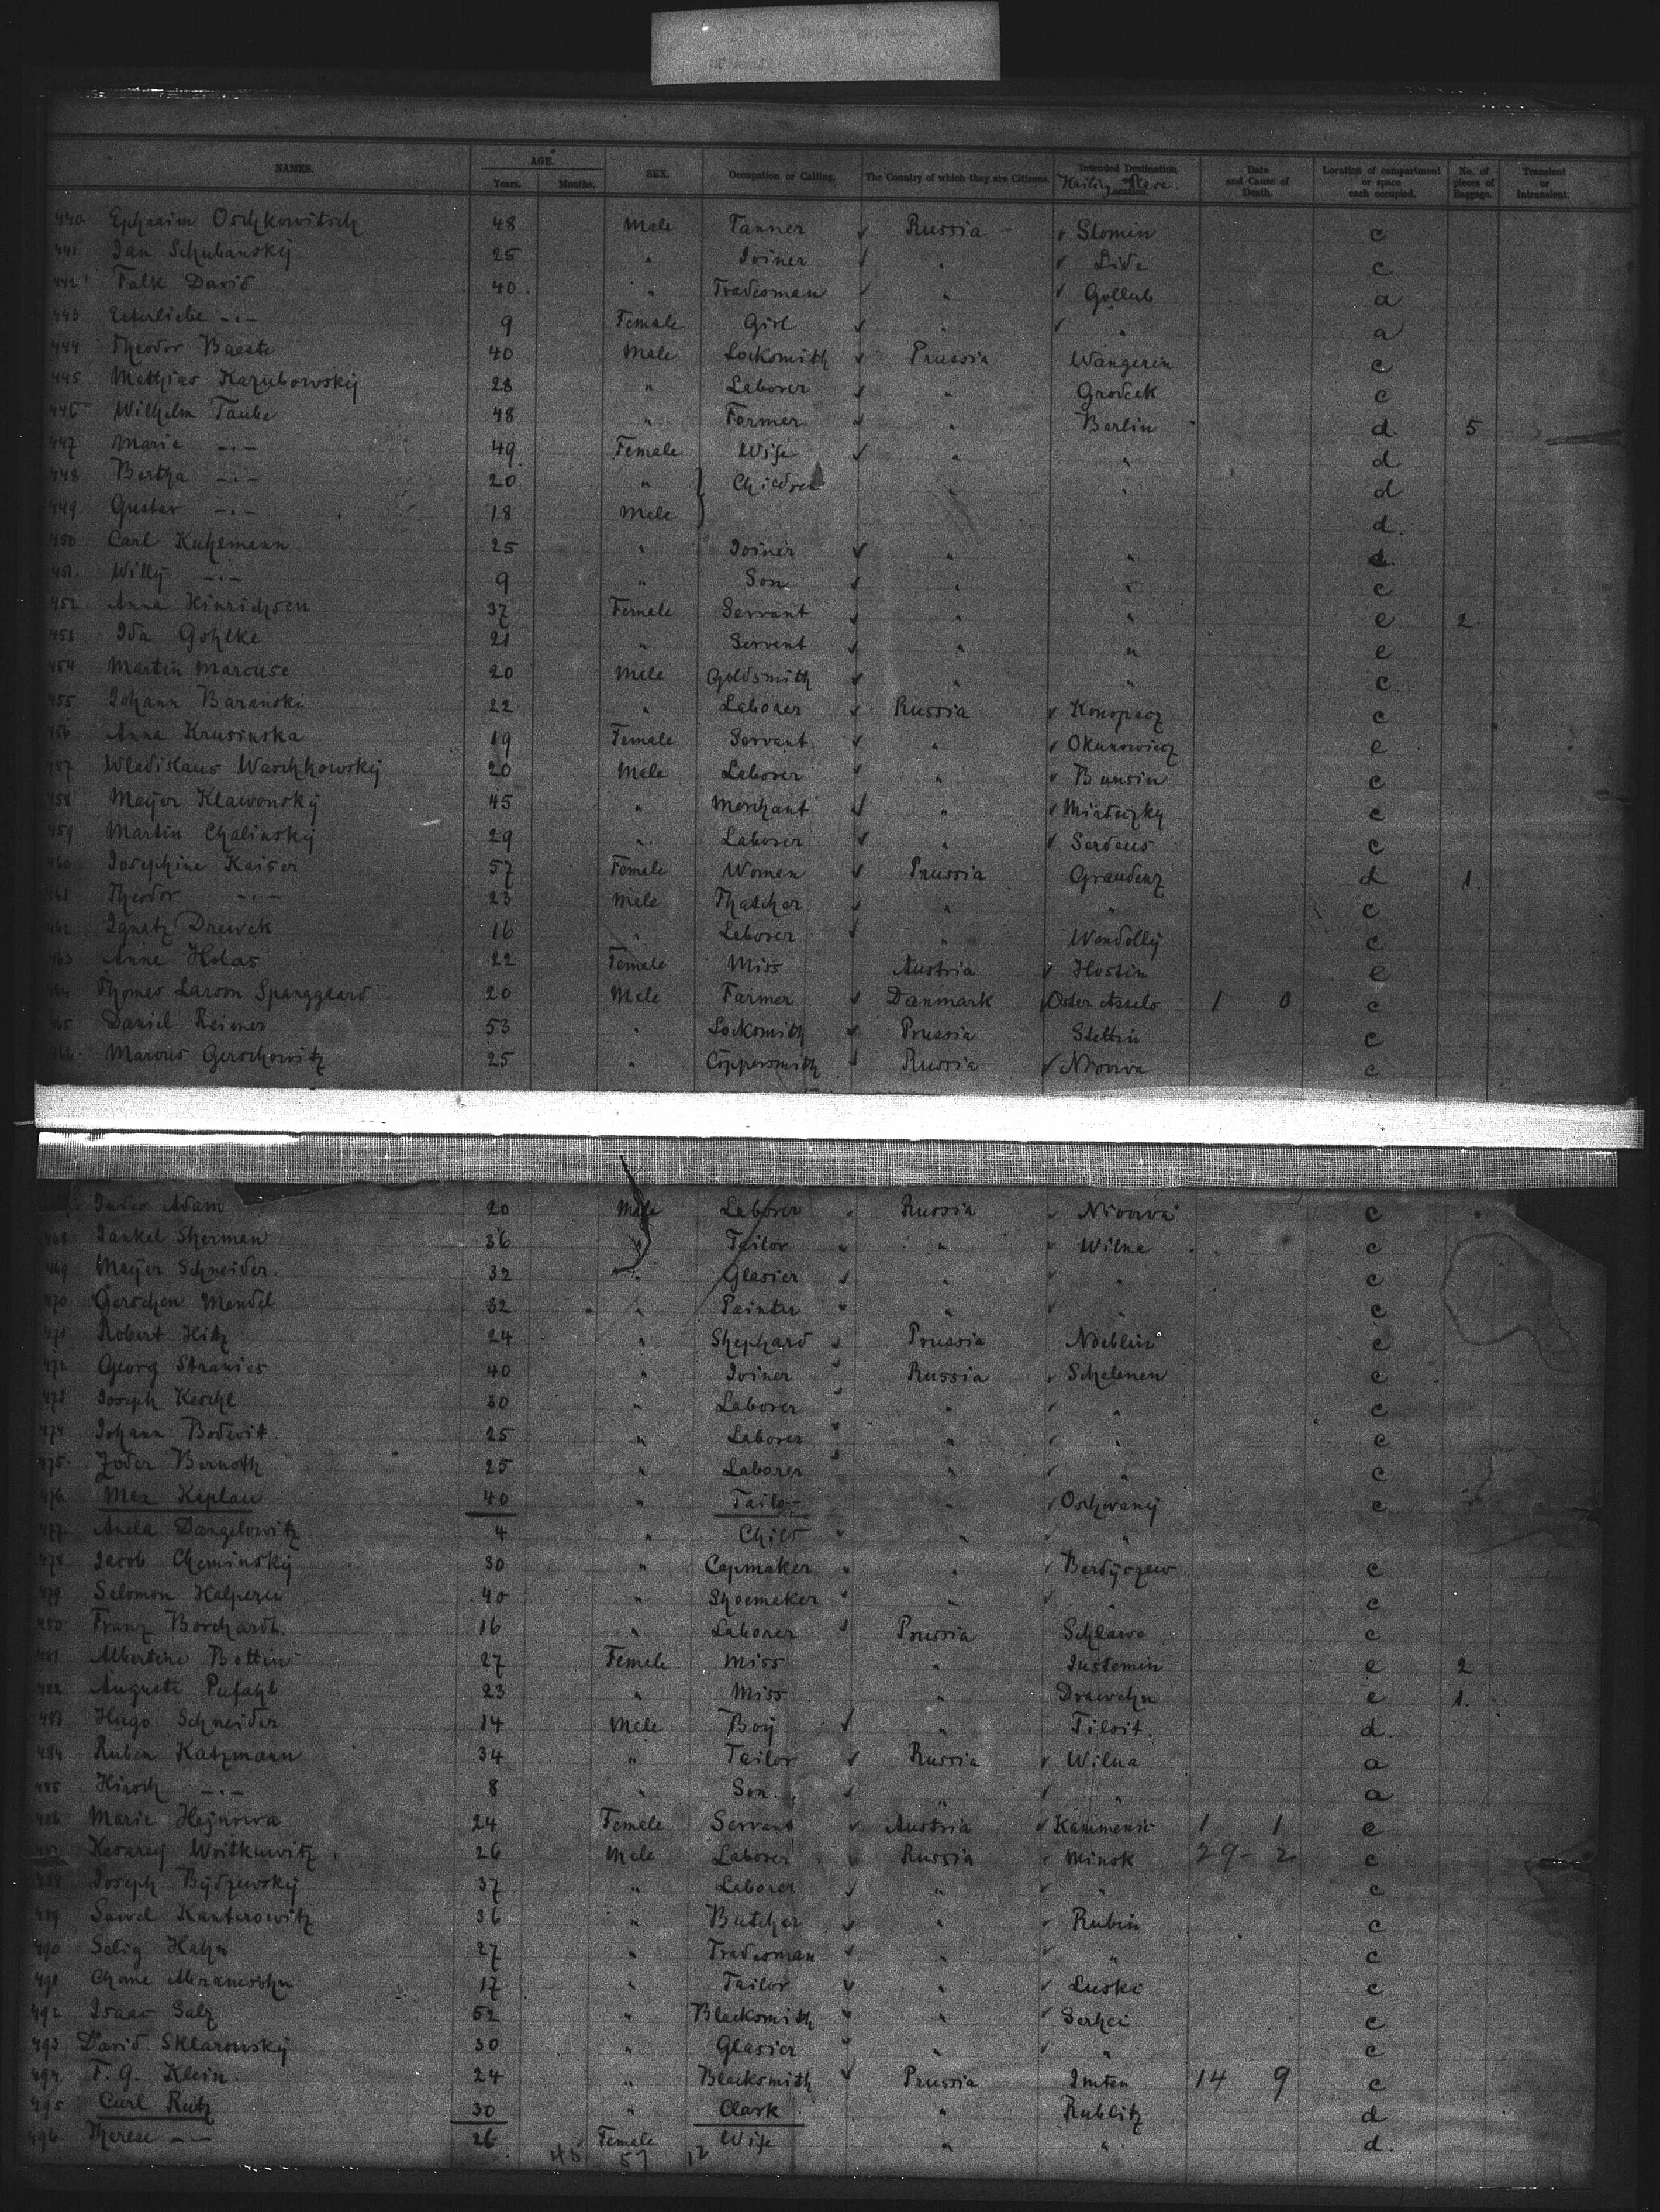 NAMES. AGE. SEX. Occupation or Calling. The Country of which they are Citizens. Intended Destination Date and Cause of Death. Location of compartment or space each occupied. No. of pieces of Baggage. Transient or Intransient.
Years. Months. Place
440 Ephraim Oschkowitsch 48 Male Tanner Russia - Slomin c
441 Jan Schubanskÿ 25 " Joiner " Lida c
442 Falk David 40 " Tradesman " Gollub a
443 Esterliebe -"- 9 Female Girl " " a
444 Theodor Baeste 40 Male Locksmith Prussia Wangerin c
445 Mathias Kazubowskÿ 28 " Laborer " Grodeck c
446 Wilhelm Taube 48 " Farmer " Berlin d 5
447 Marie -"- 49 Female Wife " " d
448 Bertha -"- 20 " } Children " " d
449 Gustav -"- 18 Male d
450 Carl Kuhlmann 25 " Joiner " "
451 Willÿ -"- 9 " Son " " c
452 Anna Hinrichsen 37 Female Servant " " e 2
453 Ida Gohlke 21 " Servent " " e
454 Martin Marcuse 20 Male Goldsmith " " c
455 Johann Baranski 22 " Laborer Russia Konopacz c
456 Anna Krusinska 19 Female Servant " Okunowicz e
457 Wladislaus Waschkowskÿ 20 Male Laborer " Bunsin c
458 Maÿer Klawonskÿ 45 " Merchant " c
459 Martin Chalinskÿ 29 " Laborer " Serdeus c
460 Josephine Kaiser 57 Female Women Prussia Graudenz d 1.
461 Theodor -"- 23 Male Thatcher " " c
462 Ignatz Drewek 16 " Laborer " Wendollÿ c
463 Anne Holas 22 Female Miss Austria Hostin e
464 Thomas Larson Spanggaard 20 Male Farmer Danmark Oster 1 0 c
465 Daniel Reimer 53 " Locksmith Prussia Stettin c
466 Marcus Gerschowitz 25 " Coppersmith Russia c
Adam 20 Male Laborer Russia c
468 Jankel Sherman 36 " Tailor " Wilna c
469 Maÿer Schneider. 32 " Glasier " " c
470 Gerschen Mendel 32 " Painter " " c
471 Robert Hitz 24 " Shephard Prussia Ndeblin c
472 Georg Stranies 40 " Joiner Russia Schelenen c
473 Joseph Keschl 30 " Laborer " " c
474 Johann Bodewit. 25 " Laborer " " c
475 Zoder Bernoth 25 " Laborer " " c
476 Max Kaplan 40 " Tailor " Oschwanÿ c
477 Anela Dangelowitz 4 " Child " "
478 Jacob Cheminskÿ 30 " Capmaker " Berdÿczew c
479 Salomon Halperen 40 " Shoemaker " " c
480 Franz Borchardt. 16 " Laborer Prussia Schlawe c
481 Albertine Bottin 27 Female Miss " Justemin e 2
482 Auguste Pufahl 23 " Miss " Drawehn e 1.
483 Hugo Schneider 14 Male Boÿ " Tilsit. d.
484 Ruben Katzmann 34 " Tailor Russia Wilna a
485 Hirsch -"- 8 " Son " " a
486 Marie Hejnowa 24 Female Servant Austria Kammenic 1 1 e
487 Woitkewitz 26 Male Laborer Russia Minsk 29- 2 c
488 Joseph Bÿdzewskÿ 37 " Laborer " " c
489 Sawel Kanterowitz 36 " Butcher " Rubin c
490 Selig Hahn 27 " Tradesman " " c
491 Chane 17 " Tailor " Luski c
492 Isaac Salz 52 " Blacksmith " Serhei c
493 David Sklarowskÿ 30 " Glasier " " c
494 F. G. Klein. 24 " Blacksmith Prussia Imten 14 9 c
495 Carl Rutz 30 " Clark " Rublitz d
496 Therese -"- 26 Female Wife " " d.
45 57 12